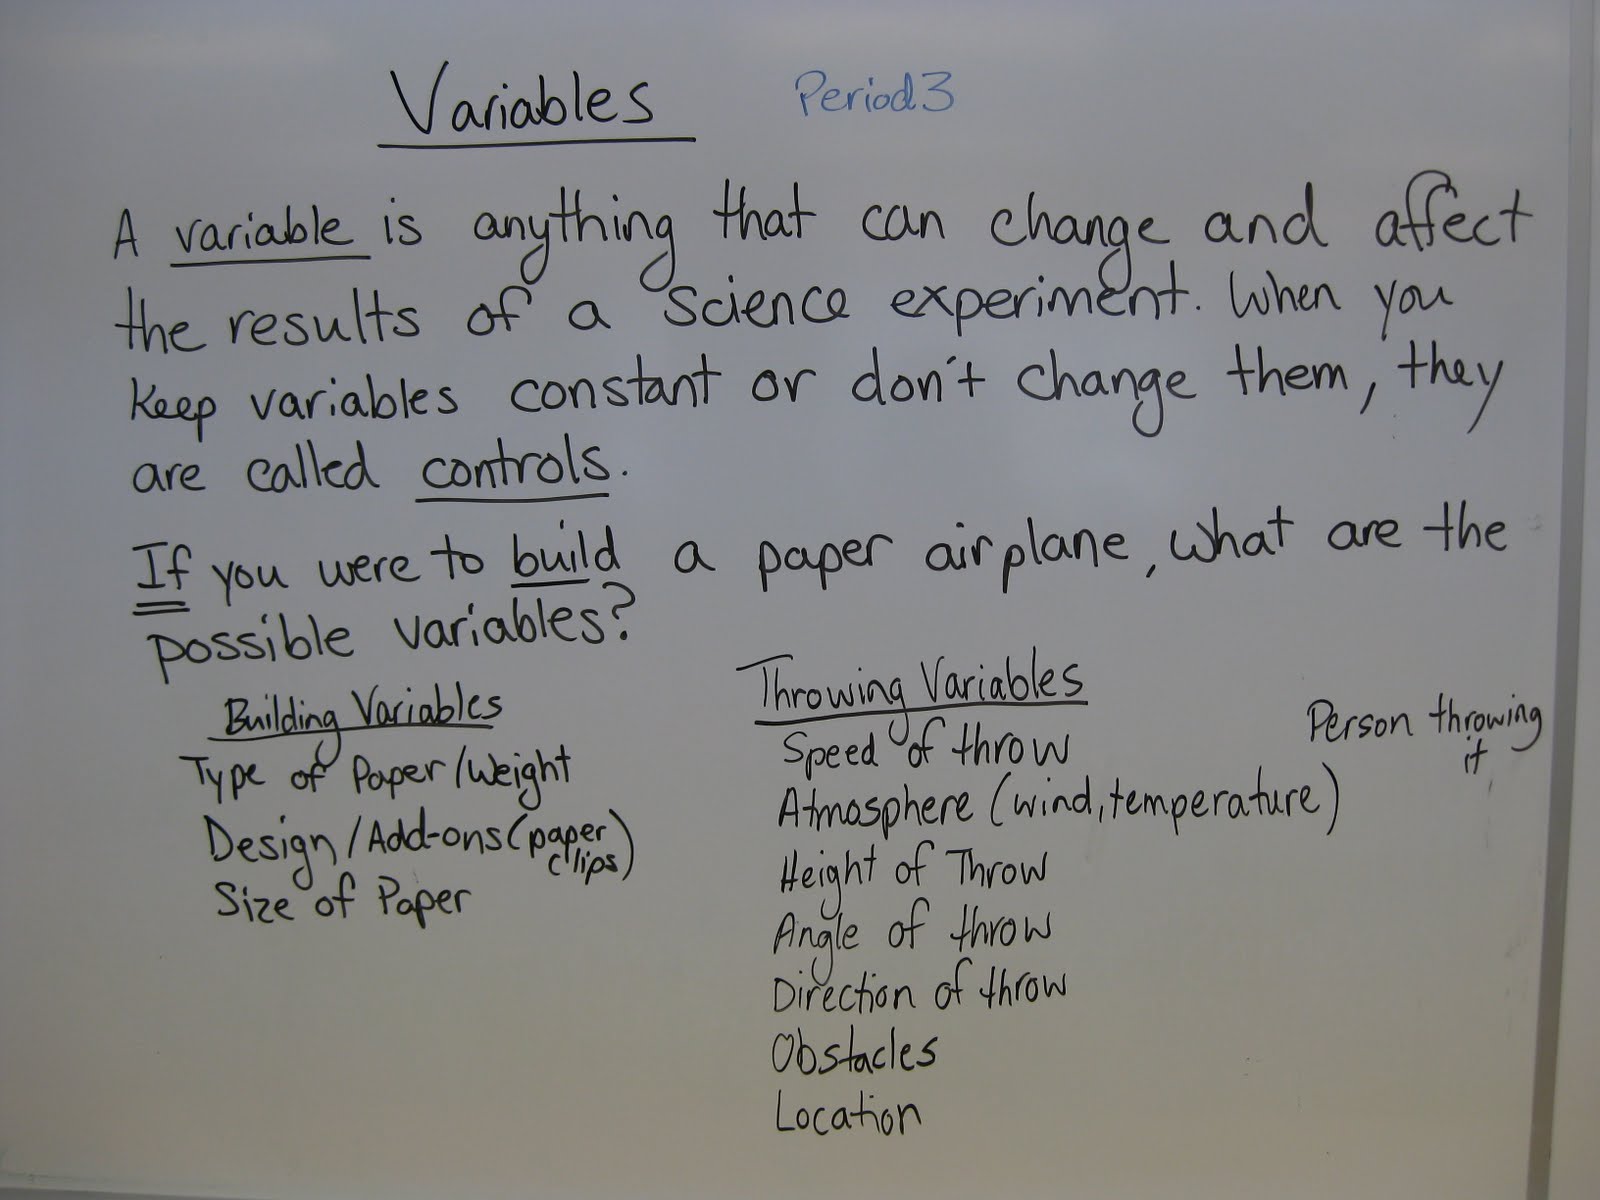 Variables Period 3
A variable is anything that can change and affect
the results of a science experiment. When you
keep variables constant or don't change them, they
are called controls.
If you were to build a paper airplane, what are the
possible variables?
Building Variables
Type of Paper/Weight
Design/Add-ons (paper
clips)
Size of Paper
Throwing Variables
Speed of throw
Atmosphere (wind, temperature)
Height of Throw
Angle of throw
Direction of throw
Obstacles
Location
Person throwing
it